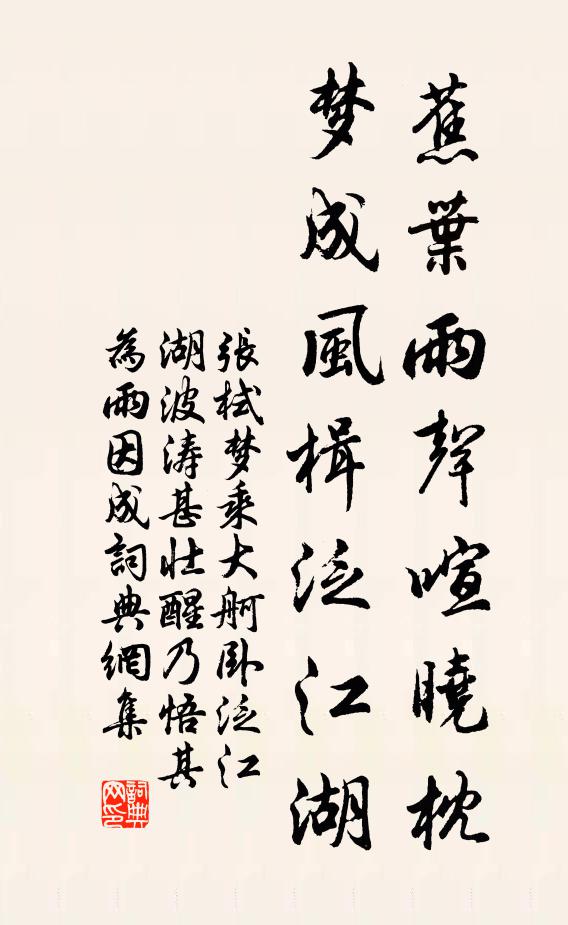 蕉葉雨聲喧曉枕
梦成風楫泛江湖
張栻梦乘大舸卧泛江
湖波涛甚壮醒乃悟其
為雨因成詞典網集
詞典
网印